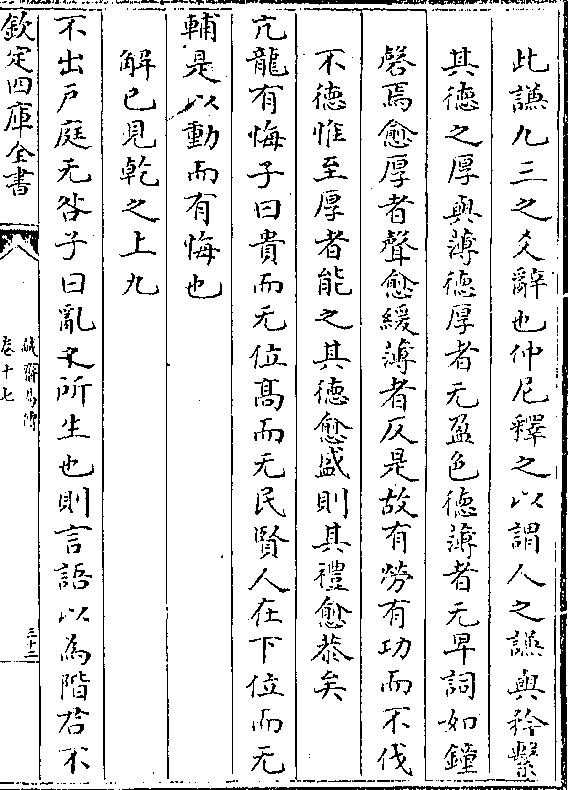 此謙九三之爻辭也仲尼釋之以謂人之謙與矜繫
其德之厚與薄德厚者无盈色德薄者无卑詞如鐘
磬焉愈厚者聲愈緩薄者仄是故有勞有功而不伐
不德惟至厚者能之其德愈盛則其禮愈恭矣
亢龍有悔子曰貴而无位髙而无民賢人在下位而无
輔是以動而有悔也
解已見乾之上九
不出戶庭无咎子曰亂之所生也則言語以為階君不
欽定四庫全書
誠齋易傳
卷十七
三十二